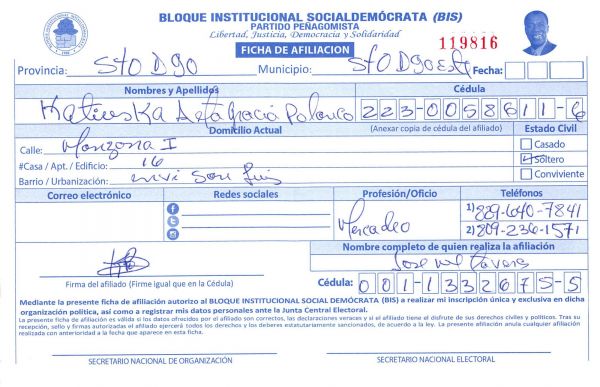 BLOQUE INSTITUCIONAL SOCIALDEMÓCRATA (BIS)
PARTIDO PEÑAGOMISTA
Libertad, Justicia, Democracia y Solidaridad
FICHA DE AFILIACION
119816
Provincia: Sto Dgo Municipio: Sto Dgo Est Fecha:
Nombres y Apellidos Cédula
Katiuska Altagracia Polanco 223-0058611-6
Domicilio Actual (Anexar copia de cédula del afiliado) Estado Civil
Calle: Manzana I Casado
#Casa / Apt. / Edificio: 16 Soltero
Barrio / Urbanización: invi San Luis Conviviente
Correo electrónico Redes sociales Profesión/Oficio Teléfonos
Mercadeo 1) 829-640-7841
2) 809-236-1571
Nombre completo de quien realiza la afiliación
Jose Ml Tavera
Firma del afiliado (Firme igual que en la Cédula) Cédula: 001-1332675-5
Mediante la presente ficha de afiliación autorizo al BLOQUE INSTITUCIONAL SOCIAL DEMÓCRATA (BIS) a realizar mi inscripción única y exclusiva en dicha
organización política, así como a registrar mis datos personales ante la Junta Central Electoral.
La presente ficha de afiliación es válida si los datos ofrecidos por el afiliado son correctos, las declaraciones veraces y si el afiliado tiene el disfrute de sus derechos civiles y políticos. Tras su
recepción, sello y firmas autorizadas el afiliado ejercerá todos los derechos y los deberes estatutariamente sancionados, de acuerdo a la ley. La presente afiliación anula cualquier afiliación
realizada con anterioridad a la fecha que aparece en esta ficha.
SECRETARIO NACIONAL DE ORGANIZACIÓN SECRETARIO NACIONAL ELECTORAL